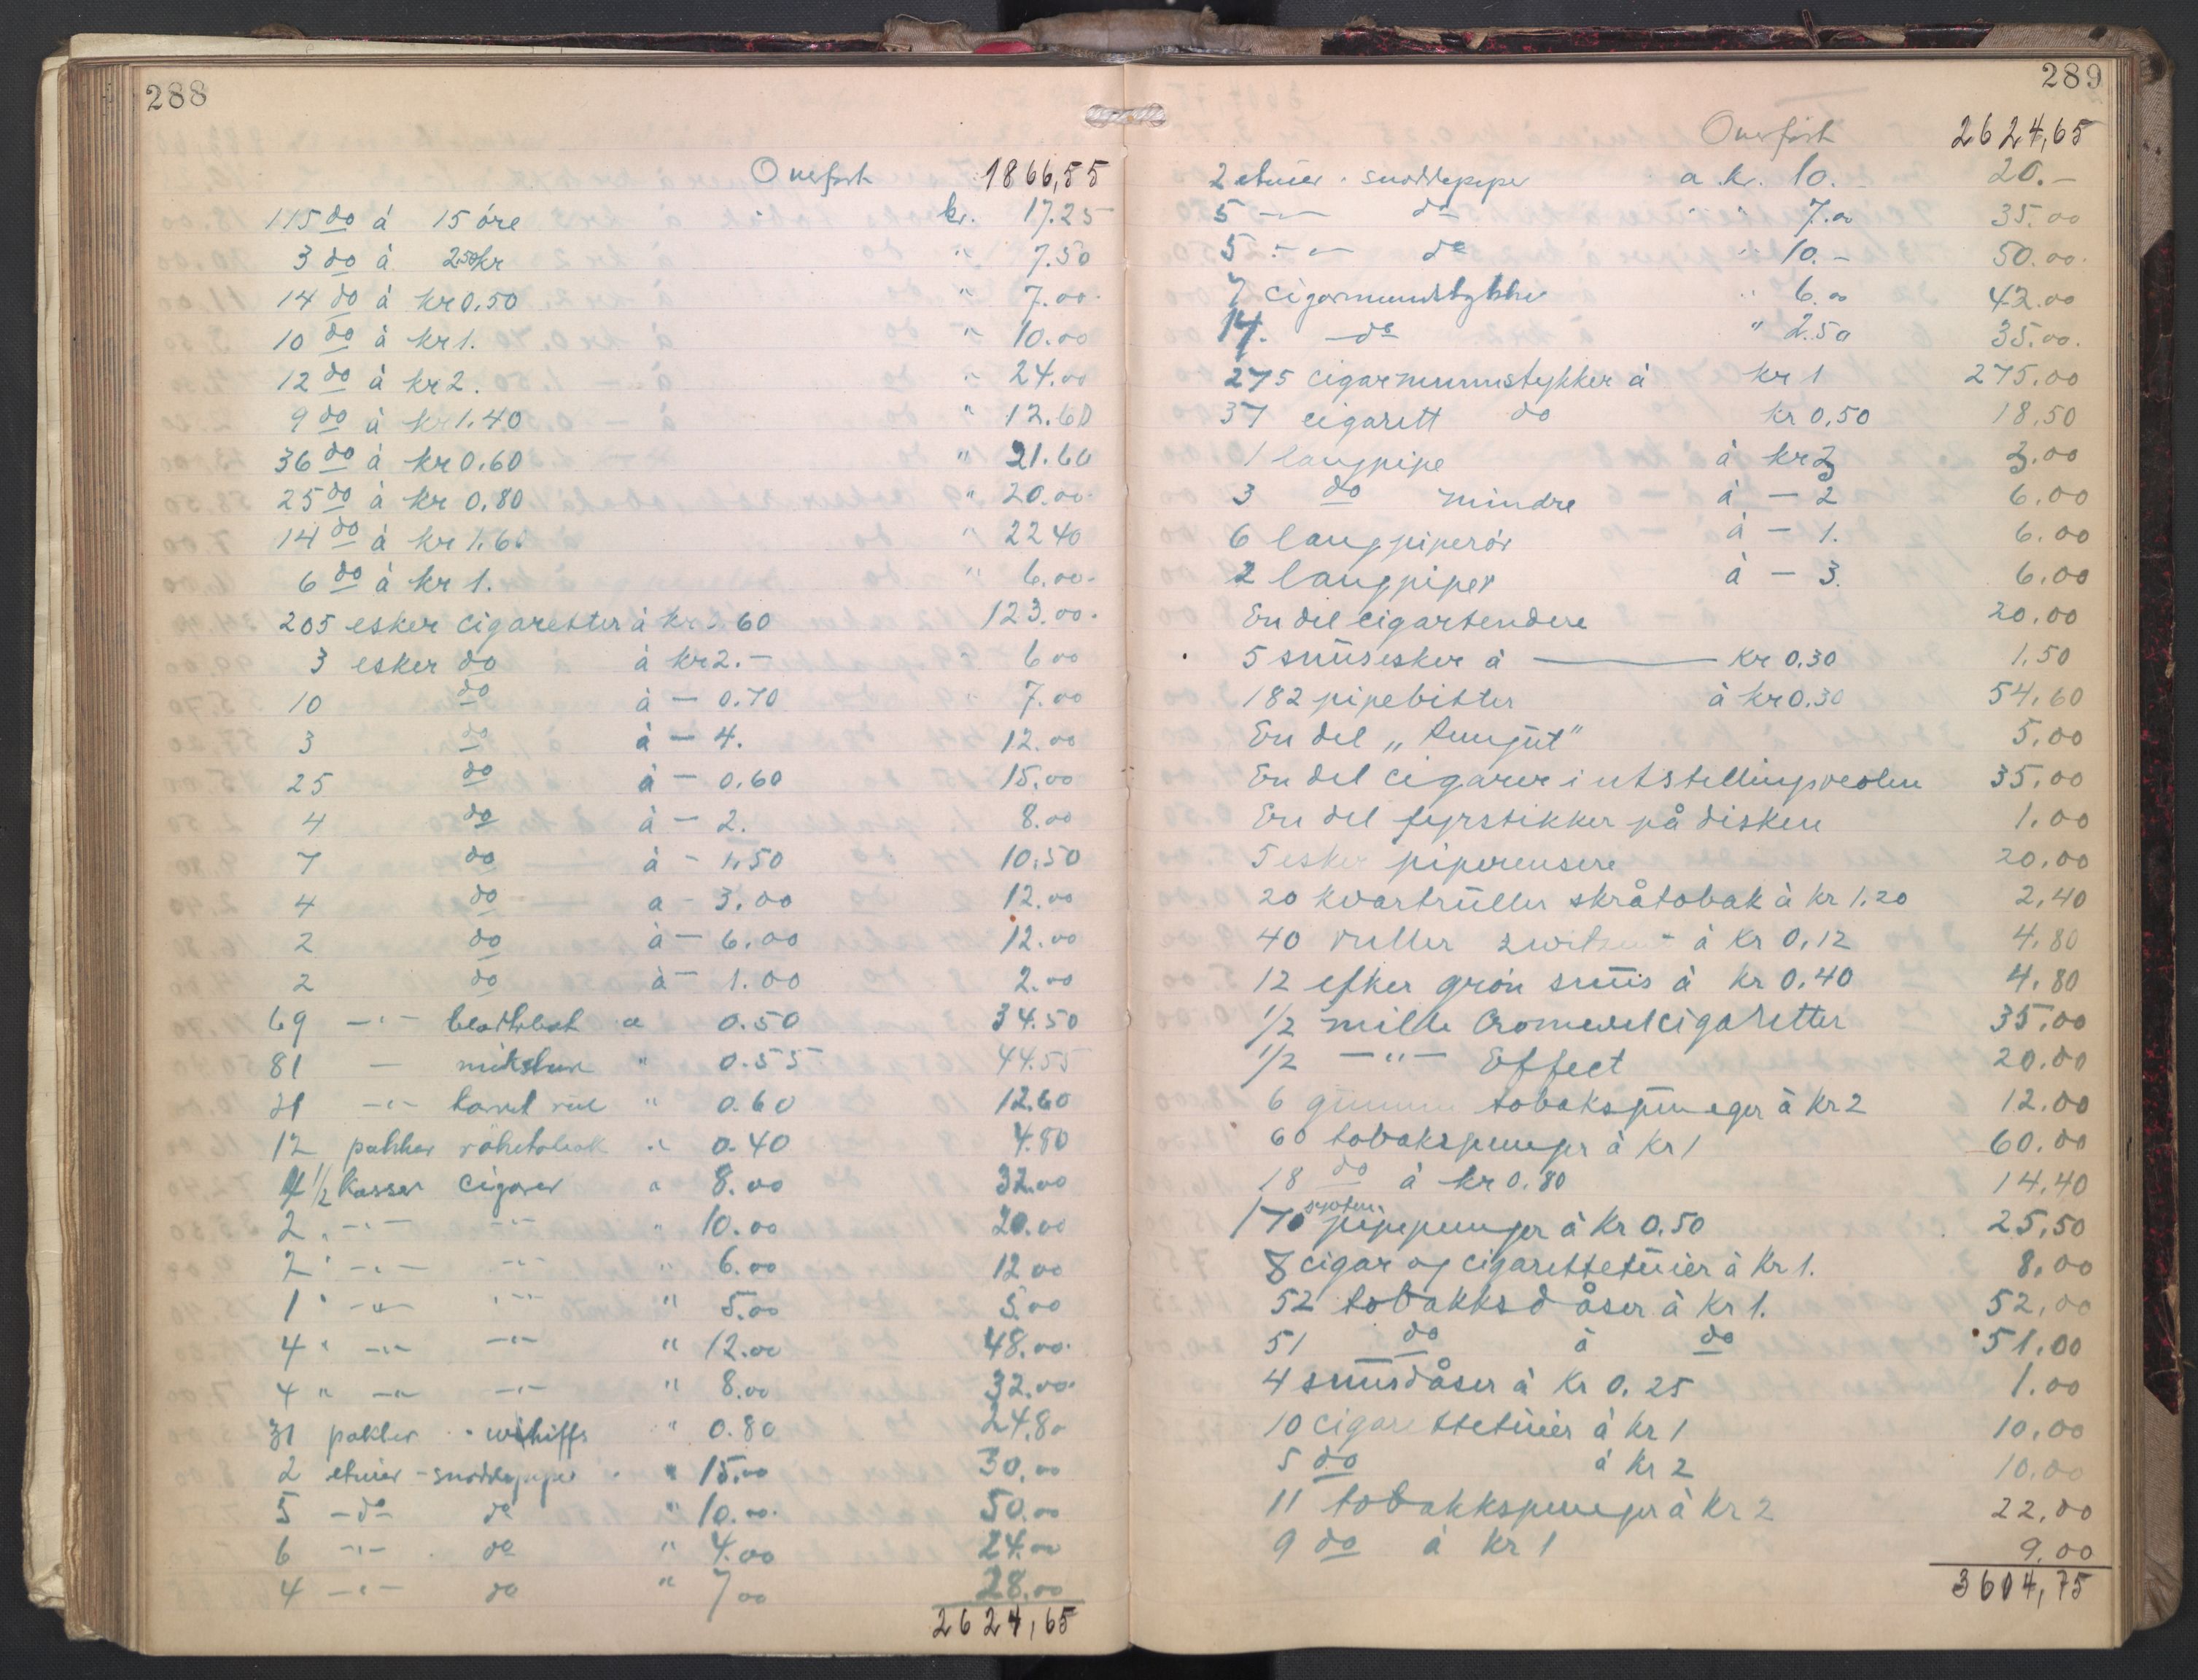 288
Overført 1866,55
115 do á 15 öre kr. 17.25
3 do á 2.50 kr " 7.50
14 do á kr 0.50 " 7.00
10 do á kr 1. " 10.00
12 do á kr 2. " 24.00
9 do á kr 1.40 " 12.60
36 do á kr 0.60 " 21.60
25 do á kr 0.80 " 20.00
14 do á kr 1.60 " 22 40
6 do á kr 1. " 6.00
205 esker cigaretter á kr 60 123.00
3 esker do á kr 2.- " 6 00
10 do á — 0.70 " 7.00
3 do á — 4. 12.00
25 do á — 0.60 15.00
4 do á — 2. 8.00
7 do á - 1.50 10.50
4 do a - 3.00 12.00
2 do á — 6.00 12.00
2 do á — 1.00 2.00
69 -"- bladtobak a 0.50 34.50
81 — mikstur " 0.55 44.55
21 -"- karvet rul " 0.60 12.60
12 pakker røketobak " 0.40 4.80
4 1/2 kasser cigarer " 8.00 32.00
2 -"- -"- " 10.00 20.00
2 -"- -"- " 6.00 12 00
1 -"- -"- " 5.00 5.00
4 -"- -"- " 12.00 48.00
4 " -"- -"- " 8.00 32.00
31 pakker whiffs " 0.80 24.80
2 etuier - snaddepiper " 15.00 30.00
5 -do- do " 10.00 50.00
6 -"- do " 4.00 24.00
4 -"- do " 7 00 28.00
2624,65
289
Overført 2624,65
2 etuier snaddepiper a kr. 10.- 20.-
5 -"- do " " 7.00 35.00
5 -"- do " 10.- 50.00
7 cigarmundstykker " 6.00 42.00
14. -do- " 2.50 35.00
275 cigarmunnstykker á kr 1 275.00
37 cigarett do kr 0,50 18,50
1 langpipe á kr 3 3.00
3 do mindre á — 2 6.00
6 langpiperör á — 1. 6.00
2 langpiper á — 3. 6.00
En del cigartendere 20.00
5 snusesker á — kr 0.30 1.50
182 pipebitter á kr 0.30 54,60
En del 5.00
En del cigarer i utstillingsreolen 35.00
En del fyrstikker på disken 1.00
5 esker piperensere 20.00
20 kvartruller skråtobak á kr 1.20 2,40
40 ruller á kr 0,12 4,80
12 esker grön snus á kr 0.40 4,80
1/2 mille Cromwelcigaretter 35,00
1/2 -"- Effect 20.00
6 gummi tobakspunger á kr 2 12.00
60 tobakspunger á kr 1 60.00
18 do á kr 0.80 14.40
170 pipepunger á kr 0.50 25,50
8 cigar og cigarettetuier á kr 1. 8.00
52 tobakksdåser á kr 1. 52,00
51 do á do 51.00
4 snusdåser á kr 0.25 1.00
10 cigarettetuier á kr 1 10,00
5 do á kr 2 10.00
11 tobakkspunger á kr 2 22,00
9 do á kr 1 9.00
3604,75